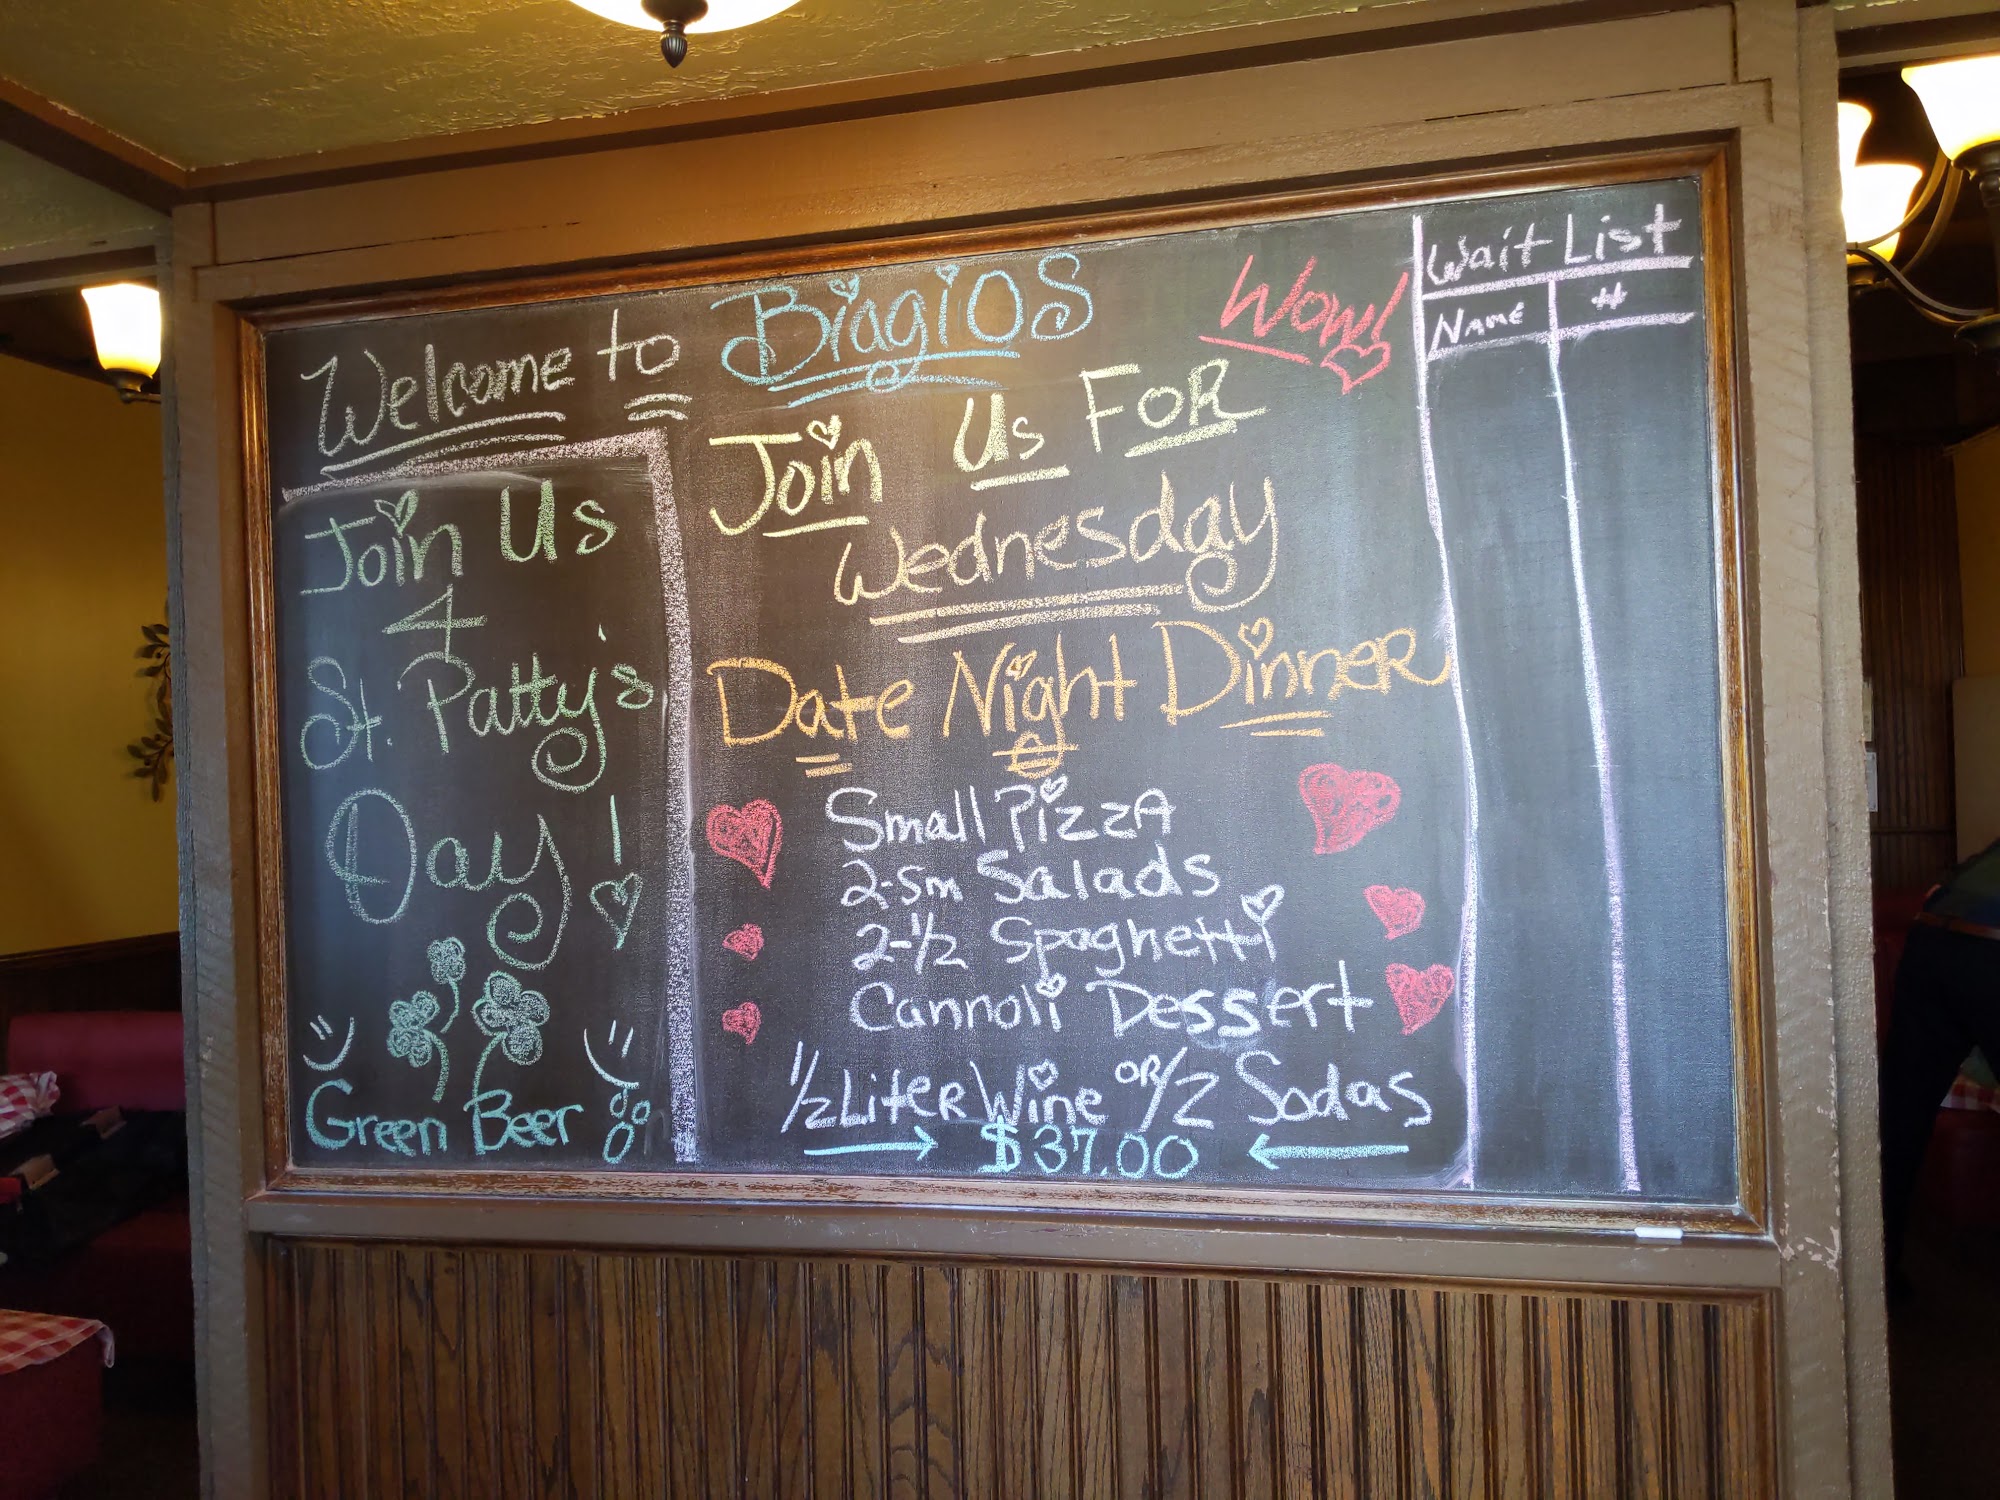 Welcome to BiagiOS
Wow!
Join Us
4
St. Patty's
Day!
Green Beer
Join Us FOR
Wednesday
Date Night DinneR
Small PizzA
2-Sm Salads
2-1/2 Spaghetti
Cannoli Dessert
1/2 LiteR Wine OR/2 Sodas
$37.00
Wait List
NAME #